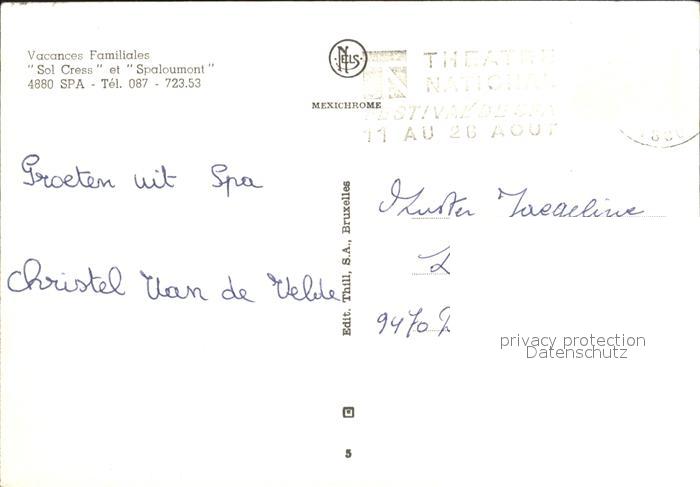 Vacances Familiales
"Sol Cress" et "Spaloumont"
4880 SPA - Tél. 087 - 723.53
NELS
MEXICHROME
THEATRE
NATIONAL
FESTIVAL DE SPA
11 AU 26 AOUT
Groeten uit Spa
Christel Van de Velde
Edit. Thill, S.A., Bruxelles
Zuster Jacqueline
9470
privacy protection
Datenschutz
5